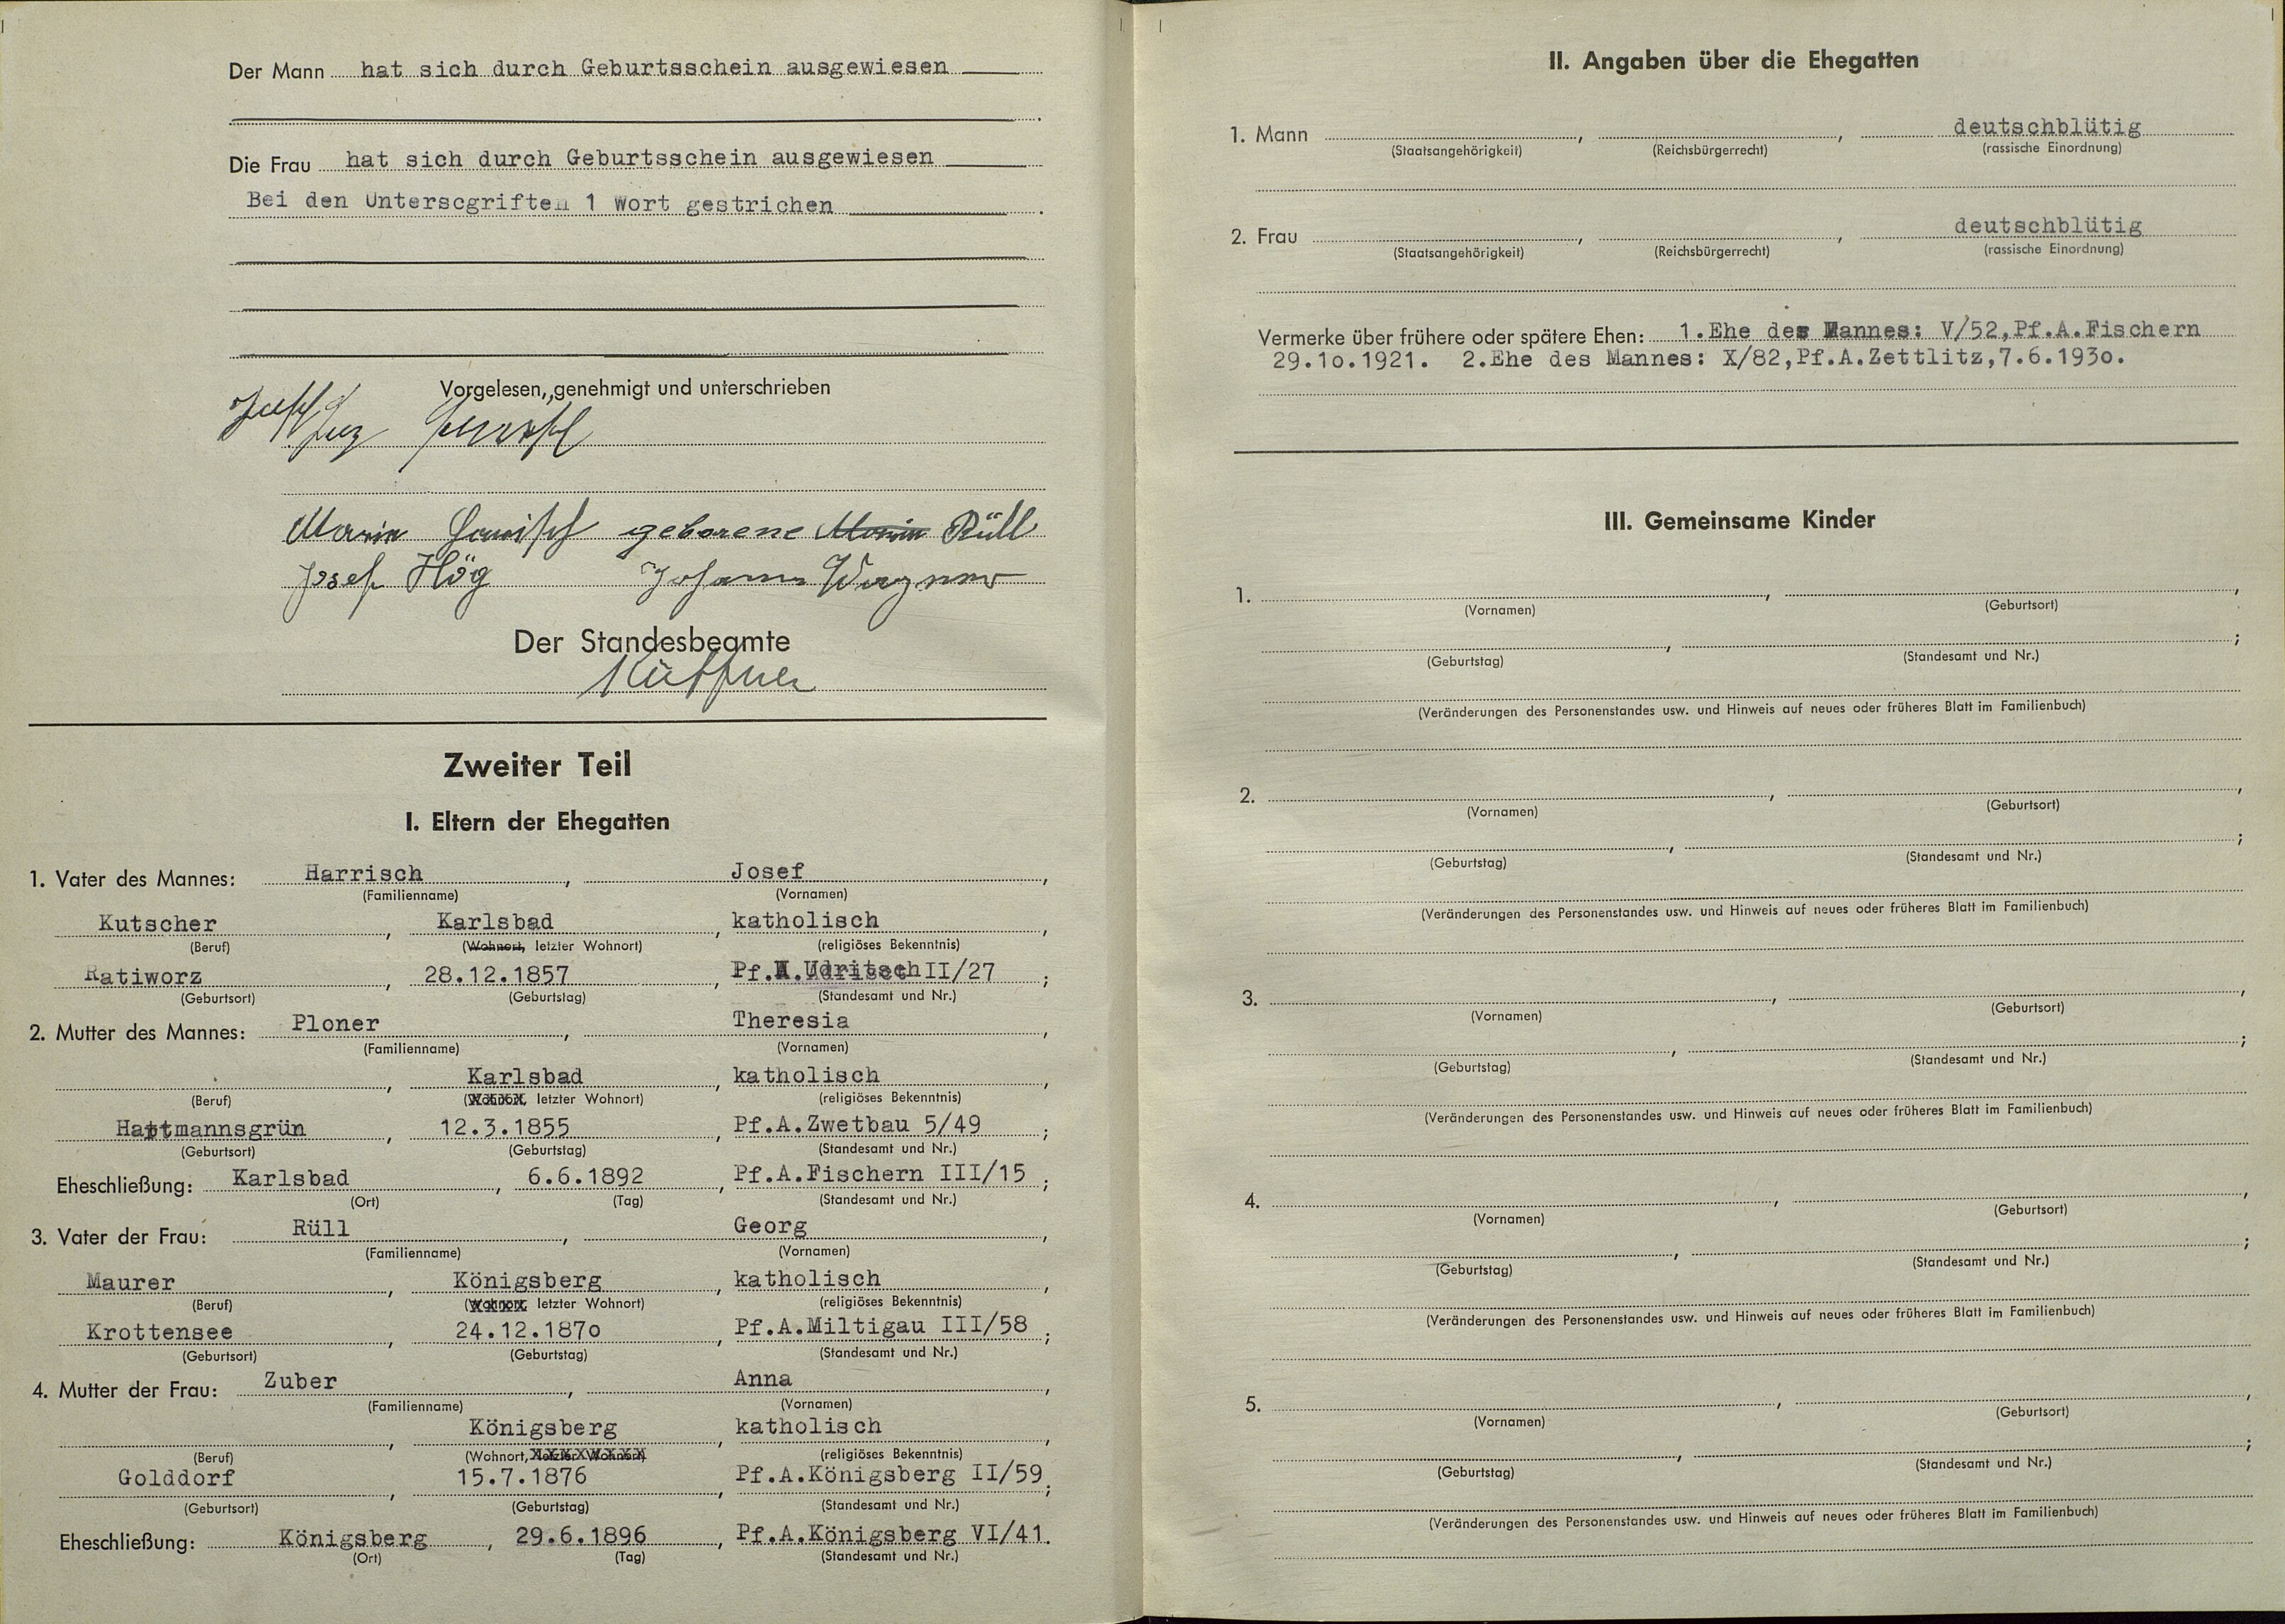 Der Mann hat sich durch Geburtsschein ausgewiesen
.
Die Frau hat sich durch Geburtsschein ausgewiesen
Bei den Unterscgriften 1 Wort gestrichen .
Vorgelesen, genehmigt und unterschrieben
Josef
Maria geborene Maria Rüll
Josef Hög Johann Wagner
Der Standesbeamte
Küttner
Zweiter Teil
I. Eltern der Ehegatten
1. Vater des Mannes: Harrisch , Josef ,
(Familienname) (Vornamen)
Kutscher , Karlsbad , katholisch ,
(Beruf) (Wohnort, letzter Wohnort) (religiöses Bekenntnis)
Ratiworz , 28.12.1857 , Pf.A.Udritsch II/27 ;
(Geburtsort) (Geburtstag) (Standesamt und Nr.)
2. Mutter des Mannes: Ploner , Theresia ,
(Familienname) (Vornamen)
, Karlsbad , katholisch ,
(Beruf) (Wohnort, letzter Wohnort) (religiöses Bekenntnis)
Hartmannsgrün , 12.3.1855 , Pf.A.Zwetbau 5/49 ;
(Geburtsort) (Geburtstag) (Standesamt und Nr.)
Eheschließung: Karlsbad , 6.6.1892 , Pf.A.Fischern III/15 ;
(Ort) (Tag) (Standesamt und Nr.)
3. Vater der Frau: Rüll , Georg ,
(Familienname) (Vornamen)
Maurer , Königsberg , katholisch ,
(Beruf) (Wohnort, letzter Wohnort) (religiöses Bekenntnis)
Krottensee , 24.12.187o , Pf.A.Miltigau III/58 ;
(Geburtsort) (Geburtstag) (Standesamt und Nr.)
4. Mutter der Frau: Zuber , Anna ,
(Familienname) (Vornamen)
, Königsberg , katholisch ,
(Beruf) (Wohnort, letzter Wohnort) (religiöses Bekenntnis)
Golddorf , 15.7.1876 , Pf.A.Königsberg II/59 ;
(Geburtsort) (Geburtstag) (Standesamt und Nr.)
Eheschließung: Königsberg , 29.6.1896 , Pf.A.Königsberg VI/41.
(Ort) (Tag) (Standesamt und Nr.)
II. Angaben über die Ehegatten
1. Mann , , deutschblütig
(Staatsangehörigkeit) (Reichsbürgerrecht) (rassische Einordnung)
2. Frau , , deutschblütig
(Staatsangehörigkeit) (Reichsbürgerrecht) (rassische Einordnung)
Vermerke über frühere oder spätere Ehen: 1.Ehe des Mannes: V/52,Pf.A.Fischern
29.1o.1921. 2.Ehe des Mannes: X/82,Pf.A.Zettlitz,7.6.193o.
III. Gemeinsame Kinder
1. , ,
(Vornamen) (Geburtsort)
, ;
(Geburtstag) (Standesamt und Nr.)
(Veränderungen des Personenstandes usw. und Hinweis auf neues oder früheres Blatt im Familienbuch)
2. , ,
(Vornamen) (Geburtsort)
, ;
(Geburtstag) (Standesamt und Nr.)
(Veränderungen des Personenstandes usw. und Hinweis auf neues oder früheres Blatt im Familienbuch)
3. , ,
(Vornamen) (Geburtsort)
, ;
(Geburtstag) (Standesamt und Nr.)
(Veränderungen des Personenstandes usw. und Hinweis auf neues oder früheres Blatt im Familienbuch)
4. , ,
(Vornamen) (Geburtsort)
, ;
(Geburtstag) (Standesamt und Nr.)
(Veränderungen des Personenstandes usw. und Hinweis auf neues oder früheres Blatt im Familienbuch)
5. , ,
(Vornamen) (Geburtsort)
, ;
(Geburtstag) (Standesamt und Nr.)
(Veränderungen des Personenstandes usw. und Hinweis auf neues oder früheres Blatt im Familienbuch)